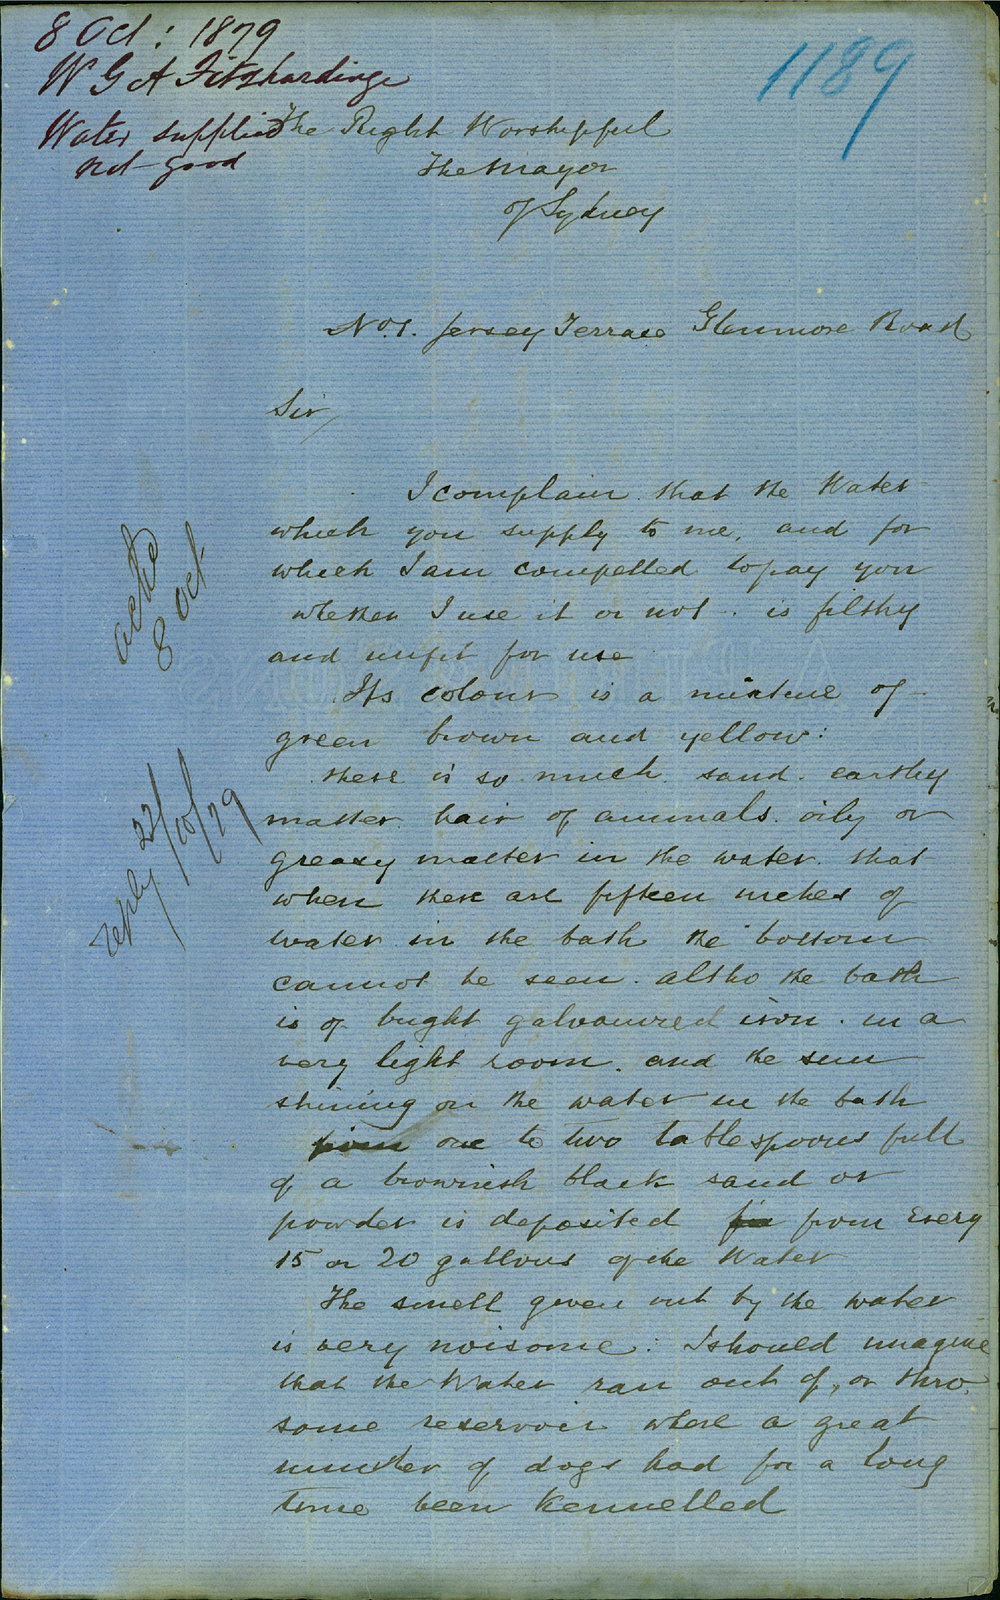 8 Oct: 1879
W G A Fitzhardinge
Water supplied
not good
1189
The Right Worshipful
The Mayor
of Sydney
No 1. Jersey Terrace Glenmore Road
Sir,
I complain that the Water
which you supply to me, and for
which I am compelled to pay you
whether I use it or not. is filthy
and unfit for use
Its colour is a mixture of
green brown and yellow:
there is so much sand. earthy
matter hair of animals. oily or
greasy matter in the water that
when there are fifteen inches of
water in the bath the bottom
cannot be seen. altho the bath
is of bright galvanized iron. in a
very light room. and the sun
shining on the water in the bath
from one to two tablespoons full
of a brownish black sand or
powder is deposited from every
15 or 20 gallons of the Water
The smell given out by the water
is very noisome: I should imagine
that the Water ran out of, or thro
some reservoir where a great
number of dogs had for a long
time been Kennelled
ackd
8 Oct
reply 22/10/79